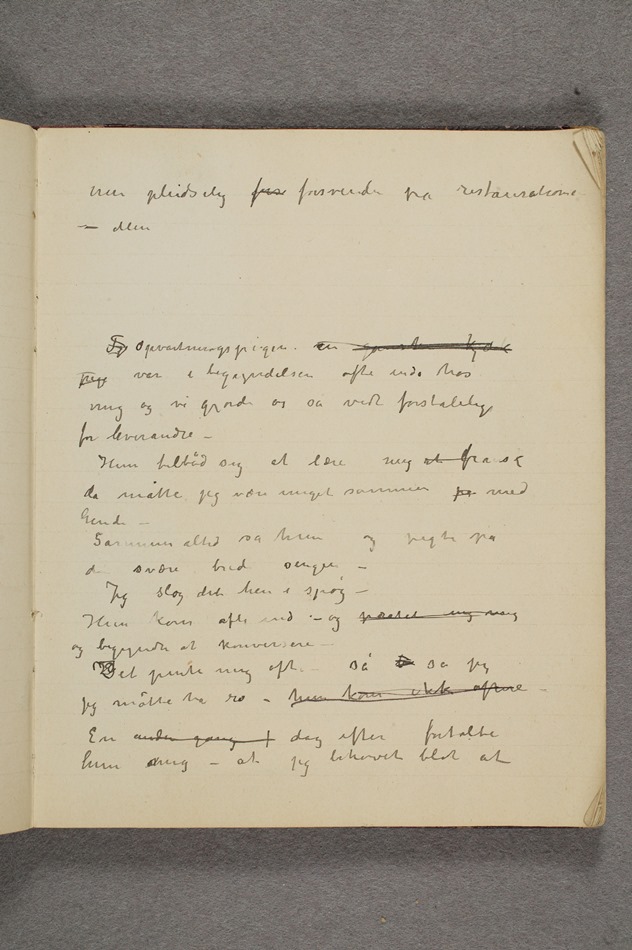 men pludselig forsvende på restaurationen
– allen
Opvartningspigen. en ganske kjæk
pige var i begyndelsen ofte inde hos
mig og vi gjorde os så vidt forståelig
for hverandre –
Hun tilbød sig at lære mig at fransk
da måtte jeg være meget sammen med
hende –
Sammen altid sa hun og pegte på
d svære bred sengen –
Jeg slog det hen i spøg –
Hun kom ofte ind – og
og begyndte at konversere –
Det pinte mig oft. – så sa jeg
jeg måtte ha ro – hun kom ikke oftere –
En anden gang dag efter fortalte
hun mig – at jeg behøvet blot at